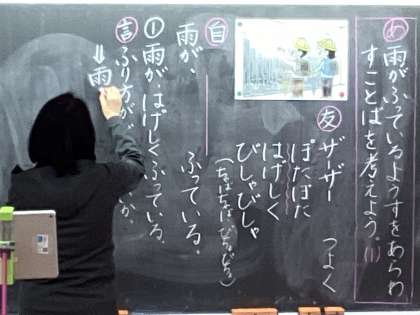 あ 雨がふっているようすをあらわ
すことばを考えよう。(1)
友 ザーザー つよく
ぽたぽた
はげしく
びしゃびしゃ
自
雨が、 ふっている。
① 雨が、はげしくふっている。
言 ふり方が
⇓ 雨